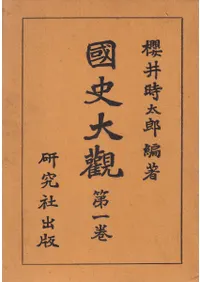 櫻井時太郎編著
國史大觀
第一卷
研究社出版